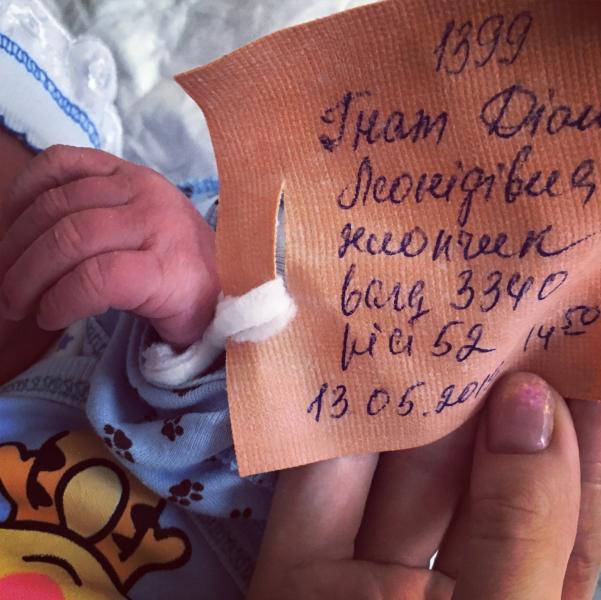 1399
Гнат Діан
Леонідівна
хлопчик
вага 3340
ріст 52 14 50
13 05.201